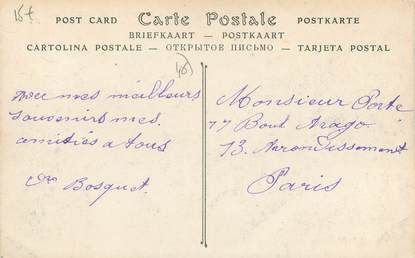 15f
POST CARD Carte Postale POSTKARTE
BRIEFKAART — POSTKAART
CARTOLINA POSTALE — ОТКРЫТОЕ ПИСЬМО — TARJETA POSTAL
avec mes meilleurs
souvenirs mes
amitiés a tous
Bosquet
Monsieur Porte
77 Boul Arago
13. Arrondissement
Paris